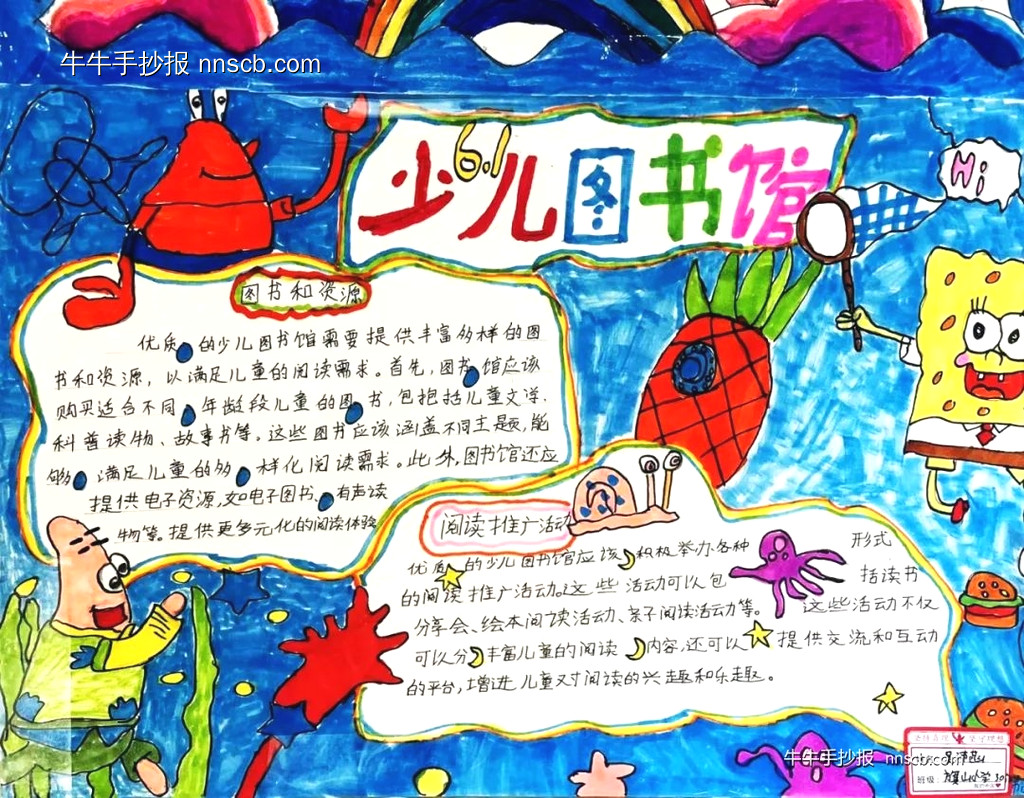 牛牛手抄报 nnscb.com
6.1
少儿图书馆
Hi
图书和资源
优质的少儿图书馆需要提供丰富多样的图
书和资源，以满足儿童的阅读需求。首先，图书馆应该
购买适合不同年龄段儿童的图书，包括儿童文学、
科普读物、故事书等。这些图书应该涵盖不同主题，能
够满足儿童的多样化阅读需求。此外，图书馆还应
提供电子资源，如电子图书、有声读
物等。提供更多元化的阅读体验
阅读推广活动
优质的少儿图书馆应该积极举办各种形式
的阅读推广活动。这些活动可以包括读书
分享会、绘本阅读活动、亲子阅读活动等。这些活动不仅
可以分丰富儿童的阅读内容，还可以提供交流和互动
的平台，增进儿童对阅读的兴趣和乐趣。
牛牛手抄报 nnscb.com
班级：
小学